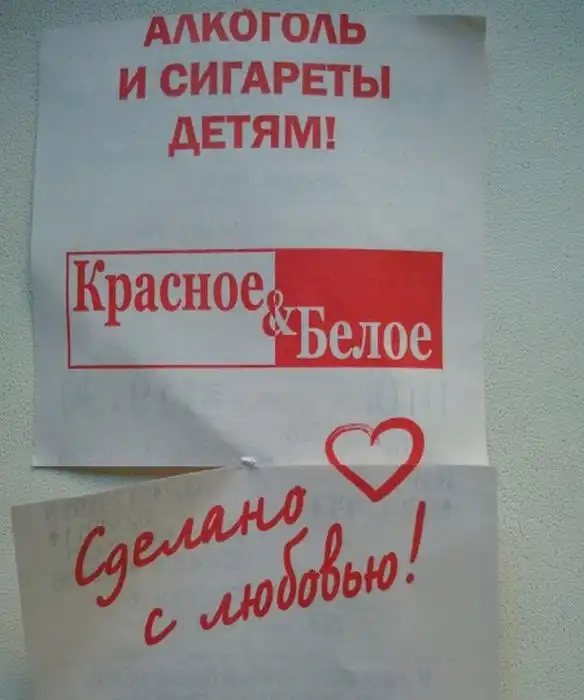 АЛКОГОЛЬ
И СИГАРЕТЫ
ДЕТЯМ!
Красное
&
Белое
Сделано
с любовью!